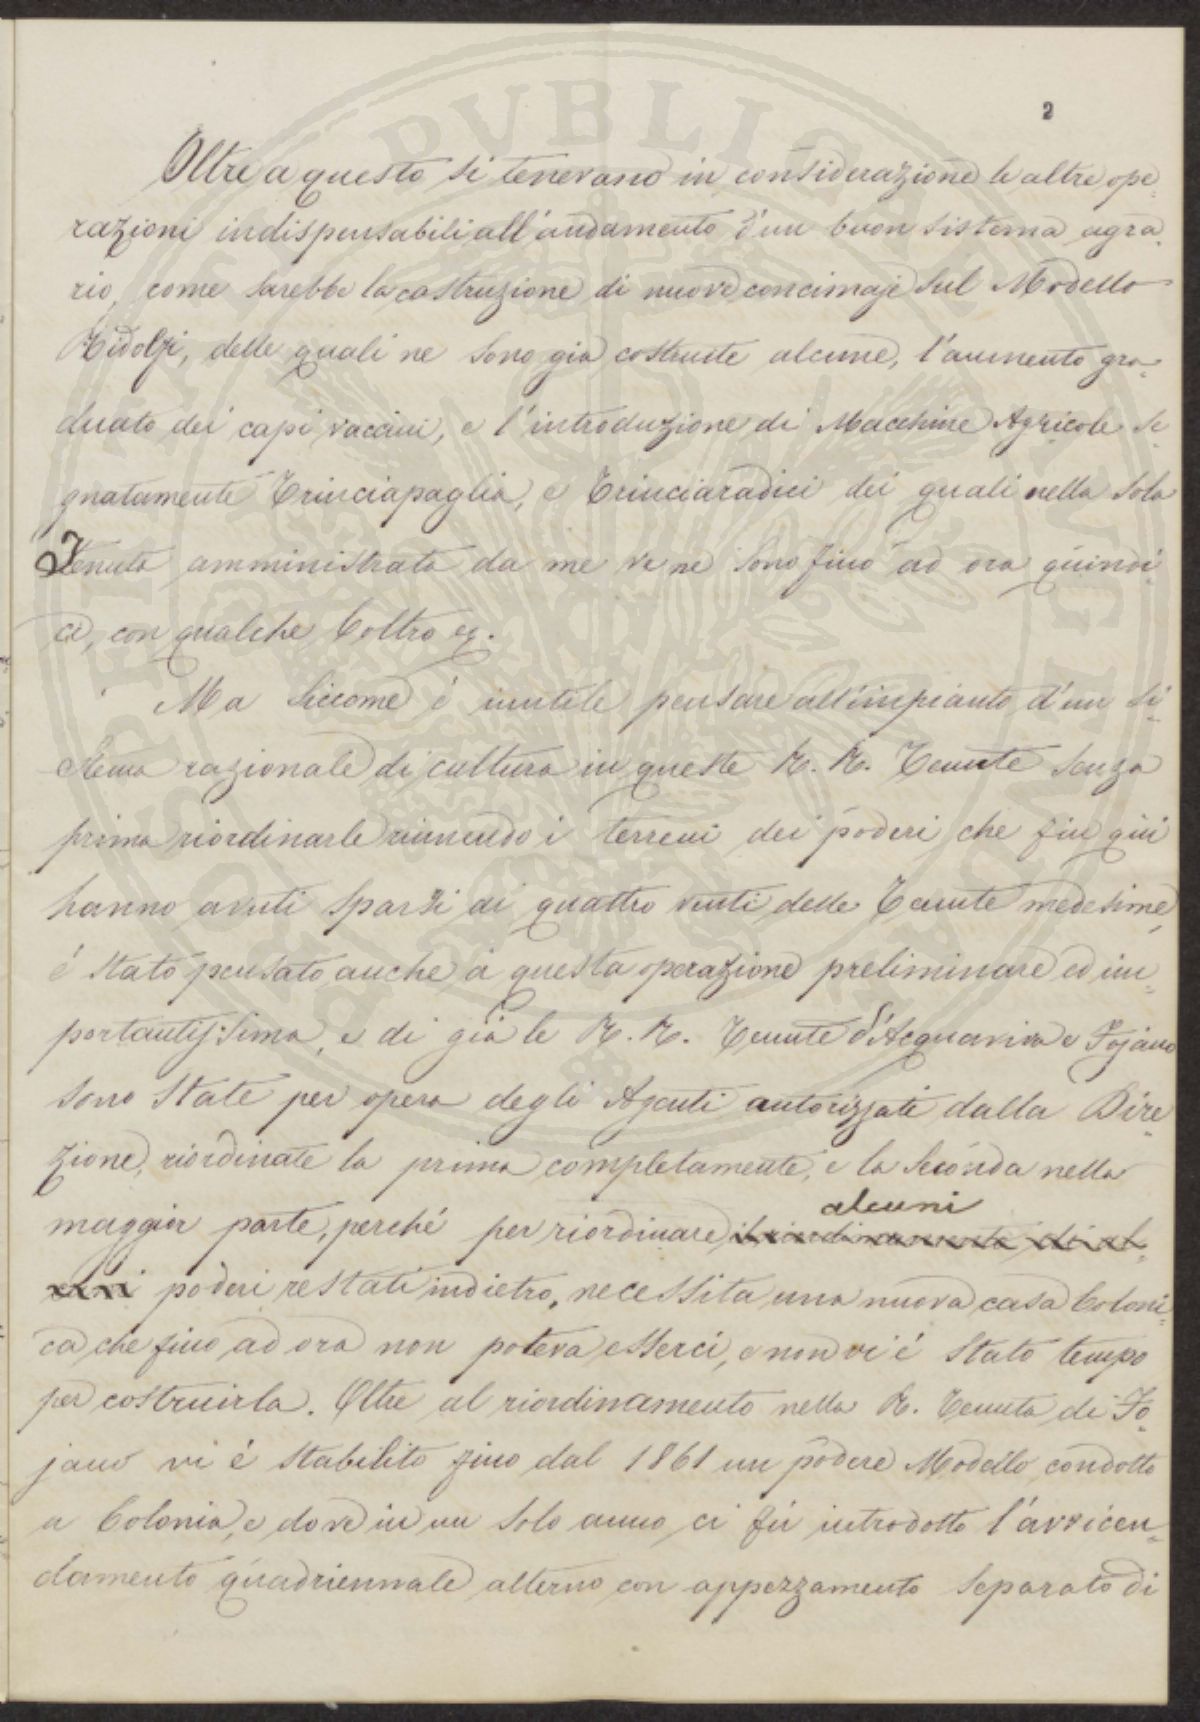 2
Oltre a questo si tenevano in considerazione le altre ope-
razioni indispensabili all'andamento d'un buon sistema agra-
rio, come sarebbe la costruzione di nuove concimaje sul Modello
Ridolfi, delle quali ne sono già costruite alcune, l'aumento gra-
duato dei capi vaccini, e l'introduzione di Macchine Agricole se-
gnatamente Trinciapaglia, e Trinciaradici dei quali nella sola
Tenuta amministrata da me ve ne sono fino ad ora quindi-
ci, con qualche Coltro
Ma siccome é inutile pensare all'impianto d'un si-
stema razionale di cultura in queste R. R. Tenute senza
prima riordinarle riunendo i terreni dei poderi che fin qui
hanno avuti sparsi ai quattro venti delle Tenute medesime,
é stato pensato anche a questa operazione preliminare ed im-
portantissima, e di già le R. R. Tenute d'Acquaviva e Fojano
sono state per opera degli Agenti autorizzati dalla Dire-
zione, riordinate la prima completamente, e la seconda nella
alcuni
maggior parte, perché per riordinare il riordinamento di al-
cuni poderi restati indietro, necessita una nuova casa Coloni-
ca che fino ad ora non poteva esserci, e non vi é stato tempo
per costruirla. Oltre al riordinamento nella R. Tenuta di Fo-
jano vi é stabilito fino dal 1861 un podere Modello condotto
a Colonia, e dove in un solo anno ci fù introdotto l'avvicen-
damento quadriennale alterno con appezzamento separato di
PUBLICAE